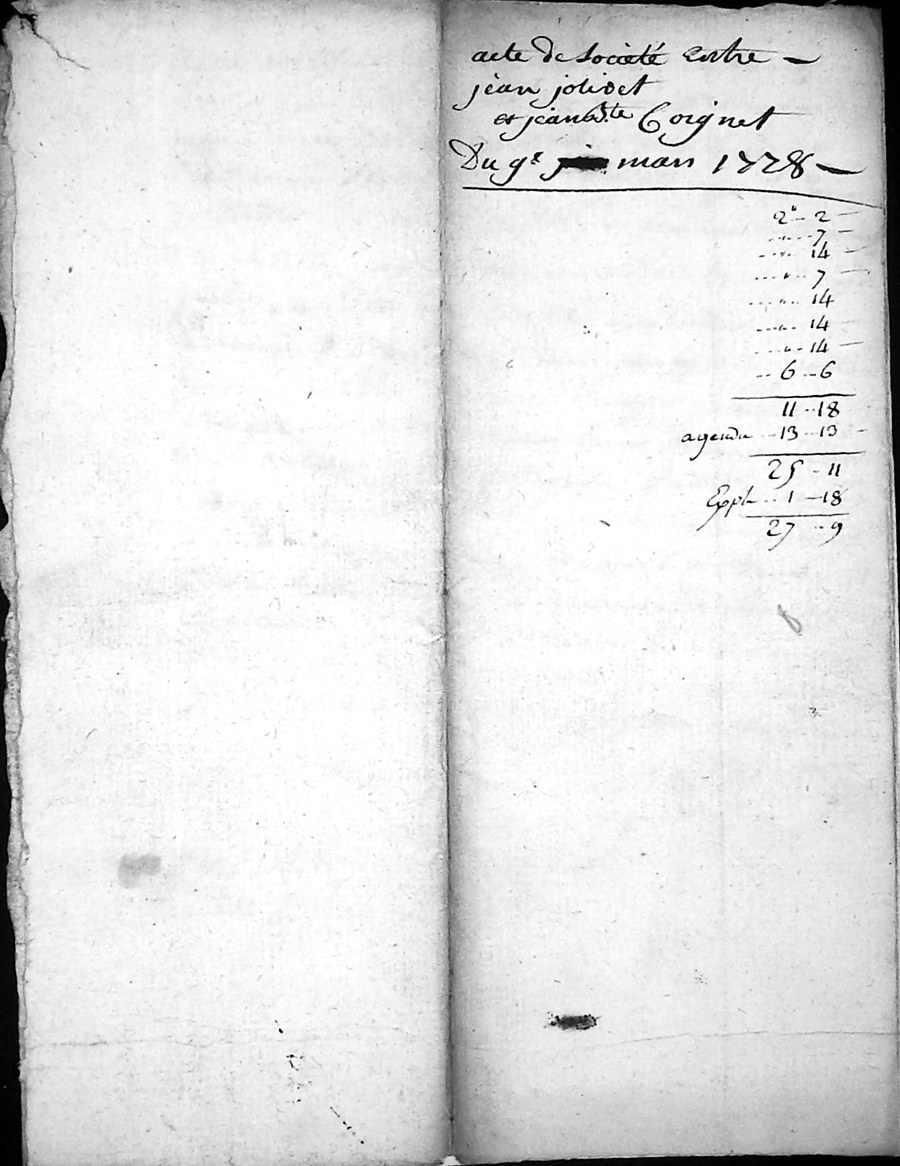 acte de Societé Entre —
jèan jolivet
et jean bte Coignet
Du 9e mars 1778 —
2" - 2 —
.. " .. 7 —
.. " .. 14 —
... " .. 7 —
... " .. 14
... " .. 14 —
... " .. 14 —
.. 6 .. 6
11 .. 18
.. 13 .. 13 —
25 .. 11
.. 1 — 18
27 .. 9